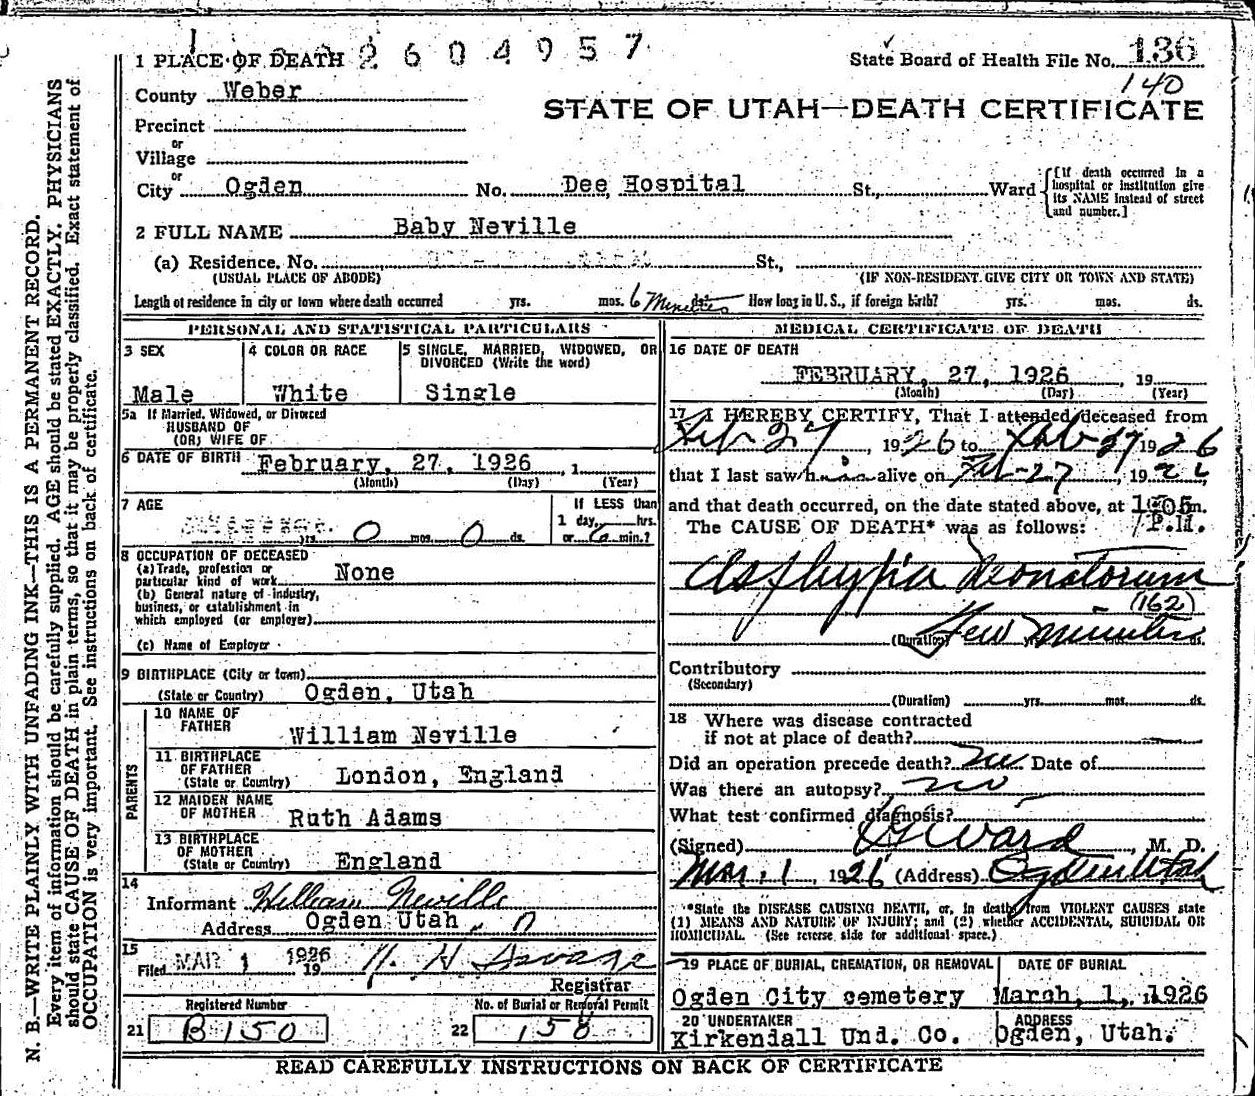 2604957
1 PLACE OF DEATH
State Board of Health File No. 136
140
County Weber
STATE OF UTAH—DEATH CERTIFICATE
Precinct
or
Village
or
City Ogden No. Dee Hospital St., Ward
[If death occurred in a hospital or institution give its NAME instead of street and number.]
2 FULL NAME Baby Neville
(a) Residence. No. St.,
(USUAL PLACE OF ABODE) (IF NON-RESIDENT GIVE CITY OR TOWN AND STATE)
Length of residence in city or town where death occurred yrs. mos. 6 Minutes ds. How long in U. S., if foreign birth? yrs. mos. ds.
PERSONAL AND STATISTICAL PARTICULARS
3 SEX 4 COLOR OR RACE 5 SINGLE, MARRIED, WIDOWED, OR
DIVORCED (Write the word)
Male White Single
5a If Married, Widowed, or Divorced
HUSBAND OF
(OR) WIFE OF
6 DATE OF BIRTH February, 27, 1926, 1
(Month) (Day) (Year)
7 AGE If LESS than
1 day, hrs.
yrs. 0 mos. 0 ds. or 6 min.?
8 OCCUPATION OF DECEASED
(a) Trade, profession or
particular kind of work None
(b) General nature of industry,
business, or establishment in
which employed (or employer)
(c) Name of Employer
9 BIRTHPLACE (City or town)
(State or Country) Ogden, Utah
PARENTS
10 NAME OF
FATHER William Neville
11 BIRTHPLACE
OF FATHER
(State or Country) London, England
12 MAIDEN NAME
OF MOTHER Ruth Adams
13 BIRTHPLACE
OF MOTHER
(State or Country) England
14
Informant William Neville
Address Ogden Utah
15
Filed MAR 1 1926 19
Registrar
Registered Number No. of Burial or Removal Permit
21 B150 22 158
MEDICAL CERTIFICATE OF DEATH
16 DATE OF DEATH
FEBRUARY, 27, 1926, 19
(Month) (Day) (Year)
17 I HEREBY CERTIFY, That I attended deceased from
Feb 27, 1926 to Feb-27 1926
that I last saw him alive on Feb-27, 1926,
and that death occurred, on the date stated above, at 1:05m.
The CAUSE OF DEATH* was as follows: P.M.
Asphyxia Neonatorum
(162)
(Duration) Few Minutes ds.
Contributory
(Secondary)
(Duration) yrs. mos. ds.
18 Where was disease contracted
if not at place of death?
Did an operation precede death? no Date of
Was there an autopsy? no
What test confirmed diagnosis?
(Signed) Ward, M. D.
Mar. 1, 1926 (Address) Ogden Utah
*State the DISEASE CAUSING DEATH, or, in death from VIOLENT CAUSES state
(1) MEANS AND NATURE OF INJURY; and (2) whether ACCIDENTAL, SUICIDAL OR
HOMICIDAL. (See reverse side for additional space.)
19 PLACE OF BURIAL, CREMATION, OR REMOVAL DATE OF BURIAL
Ogden City cemetery March, 1, 1926
20 UNDERTAKER ADDRESS
Kirkendall Und. Co. Ogden, Utah.
READ CAREFULLY INSTRUCTIONS ON BACK OF CERTIFICATE
N. B.—WRITE PLAINLY WITH UNFADING INK—THIS IS A PERMANENT RECORD.
Every item of information should be carefully supplied. AGE should be stated EXACTLY. PHYSICIANS
should state CAUSE OF DEATH in plain terms, so that it may be properly classified. Exact statement of
OCCUPATION is very important. See instructions on back of certificate.